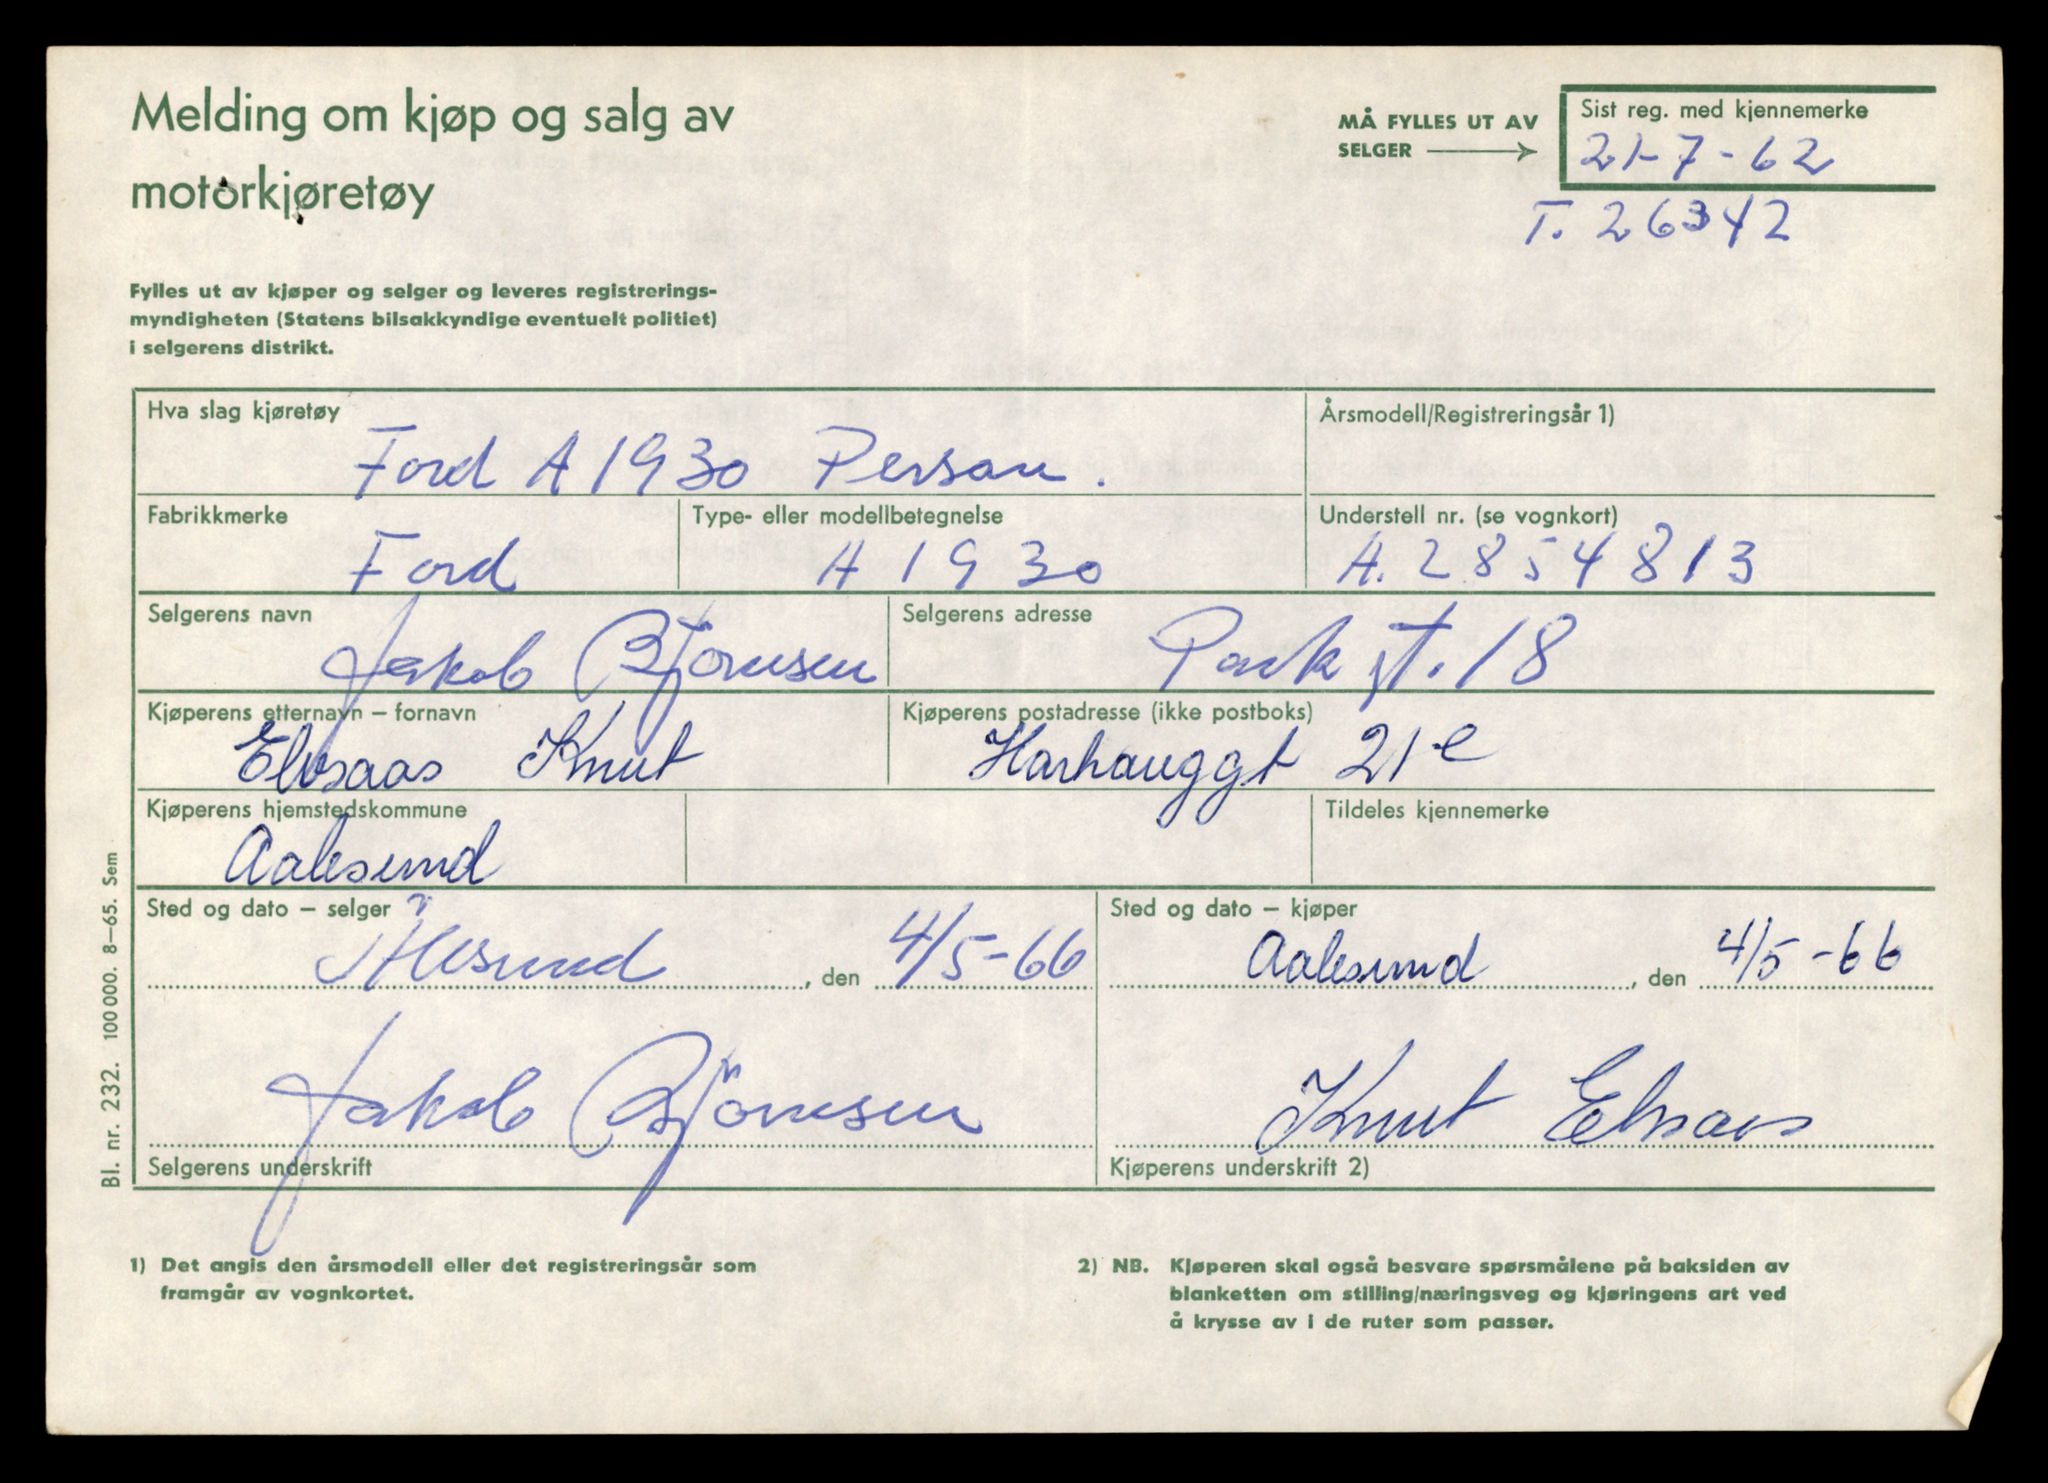 Melding om kjøp og salg av
motorkjøretøy
MÅ FYLLES UT AV
SELGER
Sist reg. med kjennemerke
21-7-62
T. 26342
Fylles ut av kjøper og selger og leveres registrerings-
myndigheten (Statens bilsakkyndige eventuelt politiet)
i selgerens distrikt.
Hva slag kjøretøy
Ford A 1930 Person.
Årsmodell/Registreringsår 1)
Fabrikkmerke
Ford
Type- eller modellbetegnelse
A 1930
Understell nr. (se vognkort)
A. 2854813
Selgerens navn
Jakob Bjørnsen
Selgerens adresse
Park gt. 18
Kjøperens etternavn – fornavn
Elvsaas Knut
Kjøperens postadresse (ikke postboks)
Harhauggt 21 c
Kjøperens hjemstedskommune
Aalesund
Tildeles kjennemerke
Sted og dato – selger
Ålesund, den 4/5-66
Sted og dato – kjøper
Aalesund, den 4/5-66
Jakob Bjørnsen
Selgerens underskrift
Knut Elvsaas
Kjøperens underskrift 2)
1) Det angis den årsmodell eller det registreringsår som
framgår av vognkortet.
2) NB. Kjøperen skal også besvare spørsmålene på baksiden av
blanketten om stilling/næringsveg og kjøringens art ved
å krysse av i de ruter som passer.
Bl. nr. 232. 100 000. 8–65. Sem